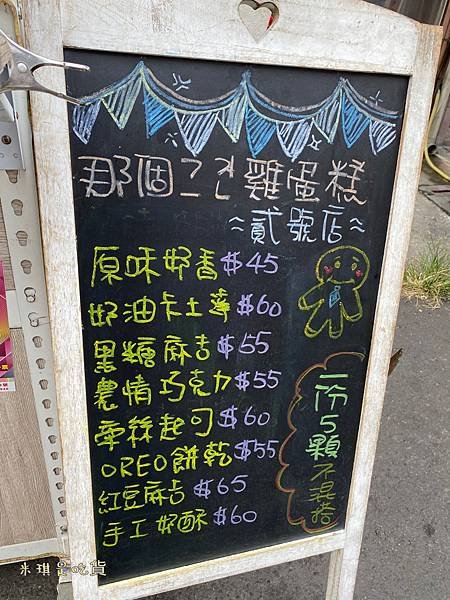 那個ㄈㄈ雞蛋糕
≈貳號店≈
原味好香$45
奶油卡士達$60
黑糖麻吉$55
濃情巧克力$55
牽絲起司$60
OREO餅乾$55
紅豆麻吉$65
手工奶酥$60
一份5顆
不混搭
米琪是吃貨